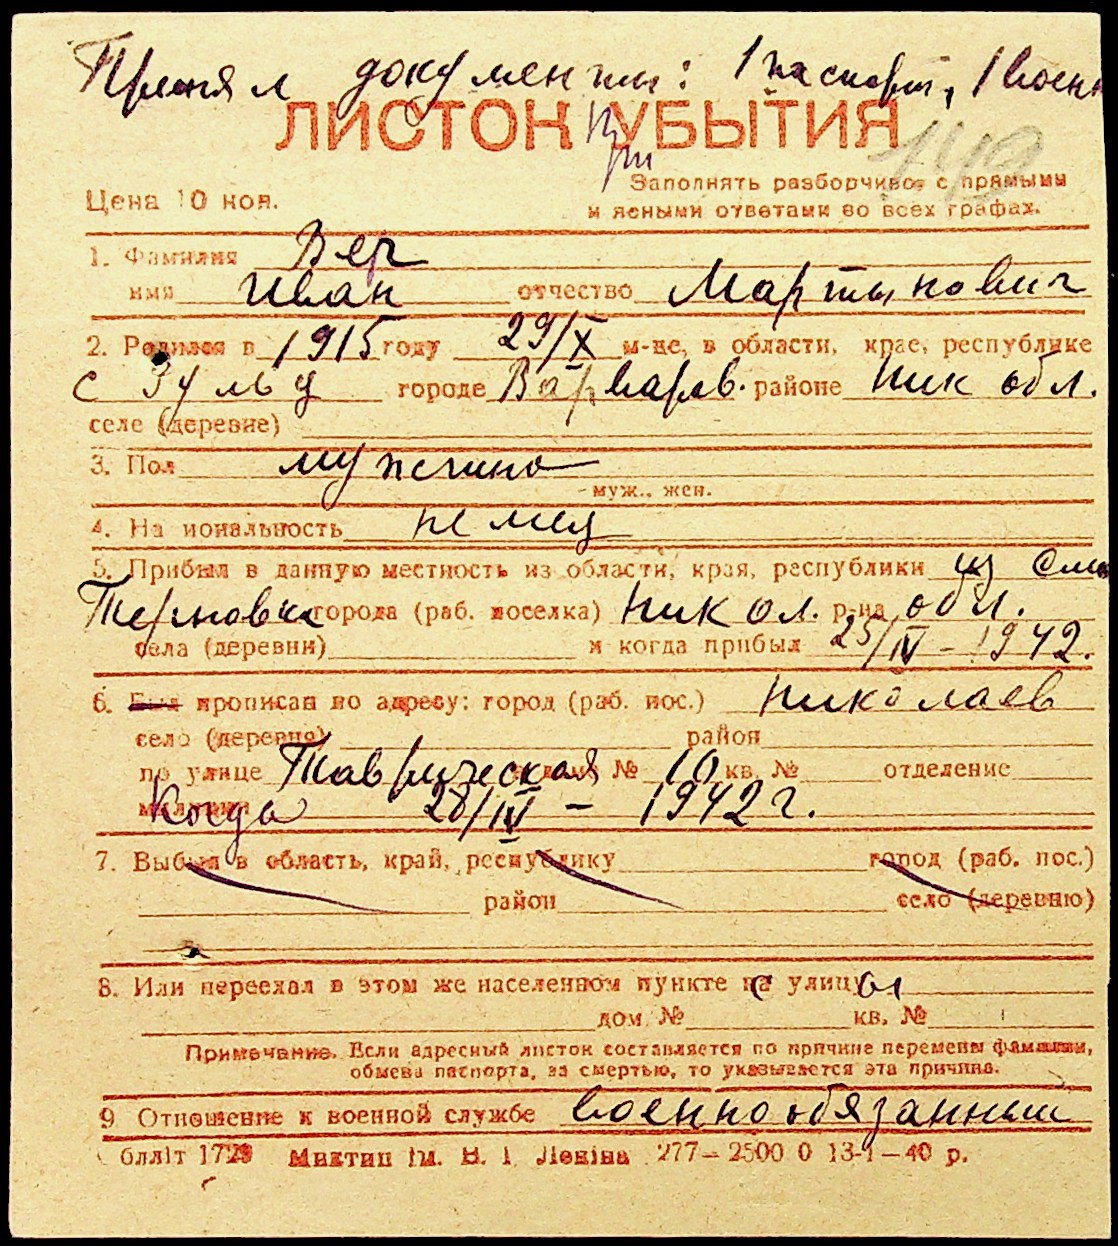 Принял документы: 1 паспорт, 1 воен
ЛИСТОК УБЫТИЯ
149
Заполнять разборчиво с прямыми
Цена 10 коп.
и ясными ответами во всех графах.
1. Фамилия Вер
имя Иван отчество Мартынович
2. Родился в 1915 году 29/X м-це, в области, крае, республике
с Зульц городе Варваров. районе Ник обл.
селе (деревне)
3. Пол мужчина
муж., жен.
4. Национальность немец
5. Прибыл в данную местность из области, края, республики из
Терновка города (раб. поселка) Никол. р-на обл.
села (деревни) и когда прибыл 25/IV – 1942.
6. Был прописан по адресу: город (раб. пос.) Николаев
село (деревня) район
по улице Таврическая дом № 10 кв. № отделение
милиции Когда 28/IV – 1942 г.
7. Выбыл в область, край, республику город (раб. пос.)
район село (деревню)
в
8. Или переехал в этом же населенном пункте с улицы
дом № кв. №
Примечание. Если адресный листок составляется по причине перемены фамилии,
обмена паспорта, за смертью, то указывается эта причина.
9 Отношение к военной службе военнообязанный
блліт 1729 Миктип ім. В. І. Леніна 277–2500 0 13-1–40 р.